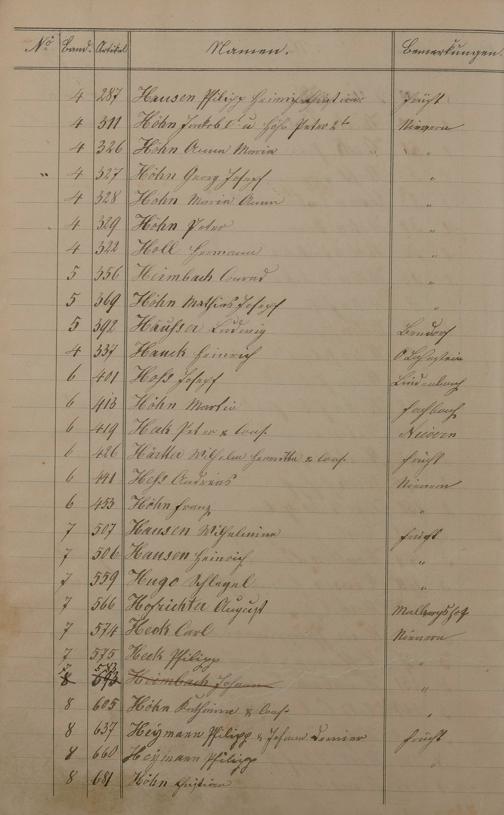 No Band. Artikel Namen. Bemerkungen.
4 287 Hausen Philipp Heinrich Frücht
4 311 Höhn Jakob 1t u Höhn Peter 2t Nievern
4 326 Höhn Anna Maria "
" 4 327 Höhn Georg Josepf "
4 328 Höhn Maria Anna "
4 329 Höhn Peter "
4 322 Holl Hermann "
5 356 Heimbach Conrad "
5 369 Höhn Mathias Josepf "
5 392 Häusser Ludwig Bendorf
4 337 Hauck Heinrich O Lahnstein
6 401 Hofs Josepf Lindenbach
6 413 Höhn Martin Fachbach
6 419 Heck Peter & Cons. Nievern
6 426 Wilhelm & Cons. Frücht
6 441 Hess Andreas Nievern
6 453 Höhn Franz "
7 507 Hausen Wilhelmine Frücht
7 506 Hausen Heinrich "
7 559 Hugo Schlegel "
7 566 Hofrichter August Malbergshof
7 574 Heck Carl Nievern
7 575 Heck Philipp "
8 593 Heimbach Johann "
8 605 Höhn Katharina & Cons. "
8 637 Heymann Philipp & Johann Frücht
8 660 Heymann Philipp
8 681 Höhn Christian